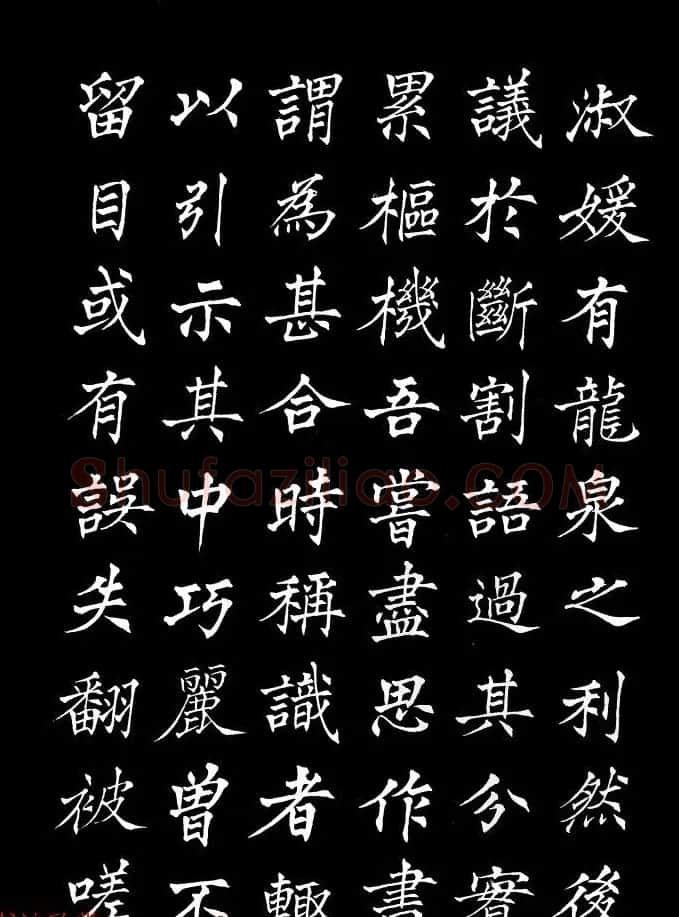 淑媛有龍泉之利然後
議於斷割語過其分實
累樞機吾嘗盡思作書
謂為甚合時稱識者輙
以引示其中巧麗曾不
留目或有誤失翻被嗟
Shufaziliao.COM